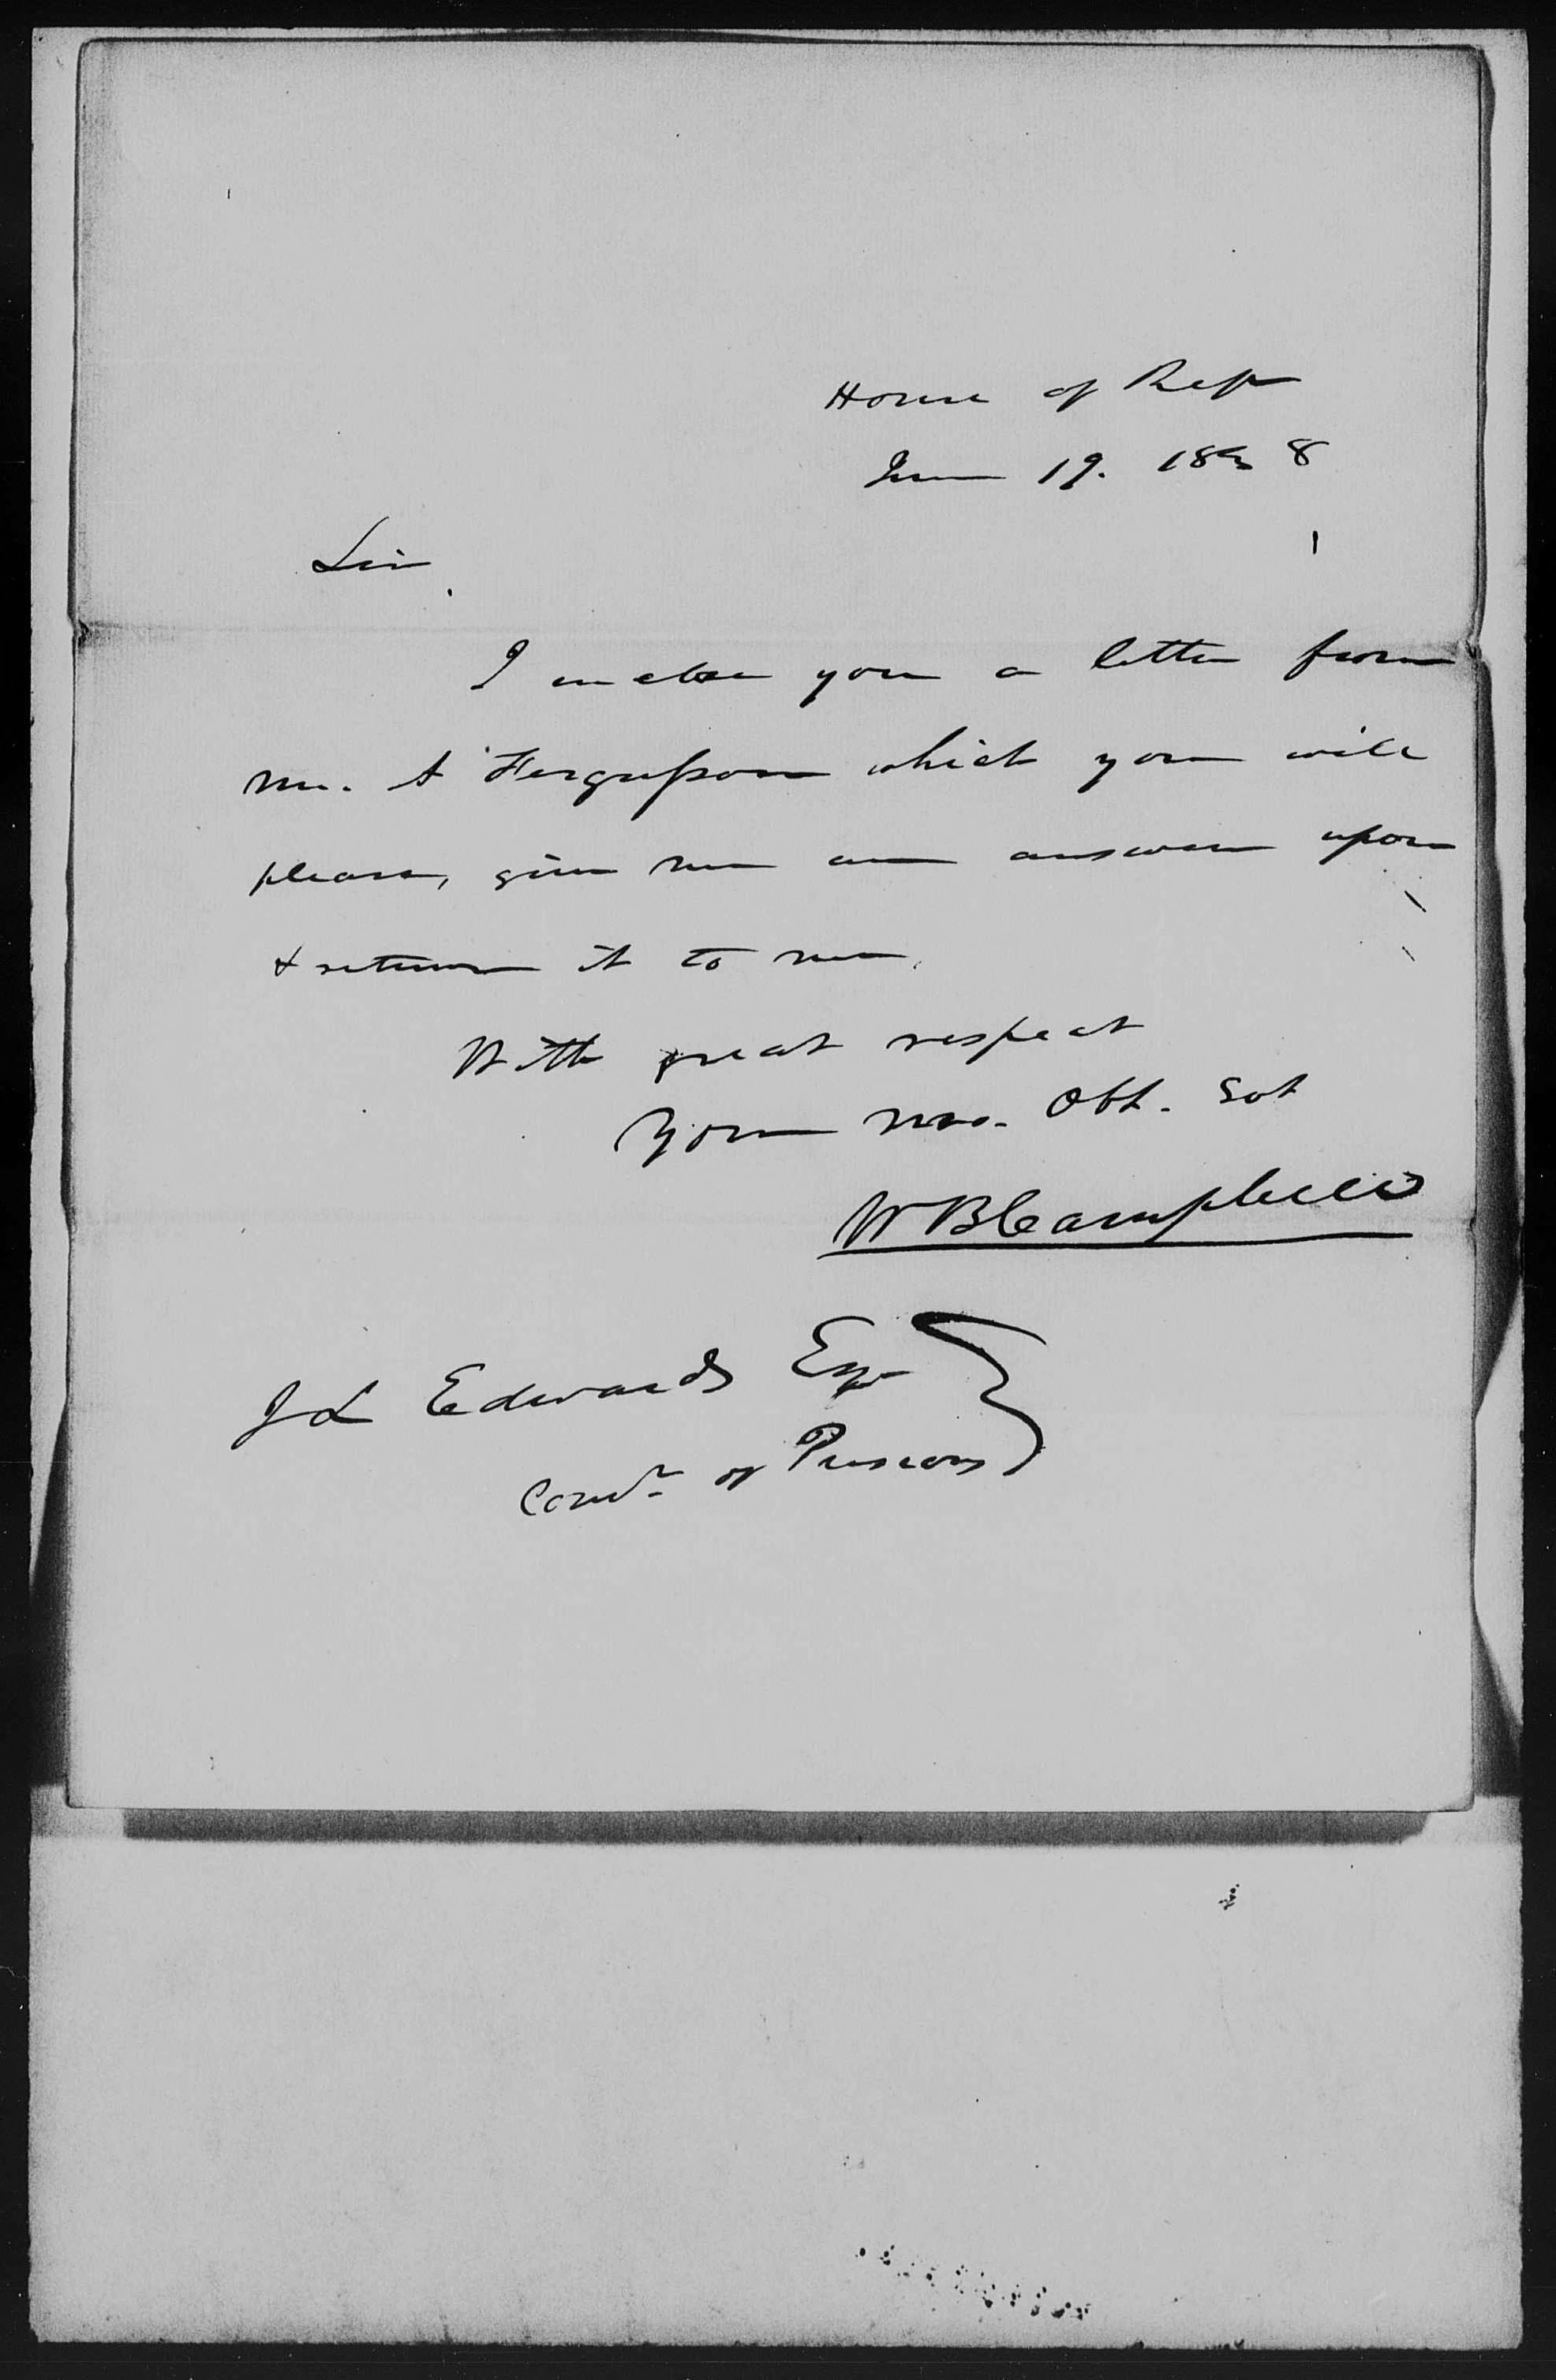 House of Reps
June 19. 1838
Sir.
I enclose you a letter from
Mr. A Fergusson which you will
please, give me an answer upon
& return it to me.
With great respect
Your mo. Obt. Svt
W B Campbell
J L Edwards Esqr
Comr. of Pensions